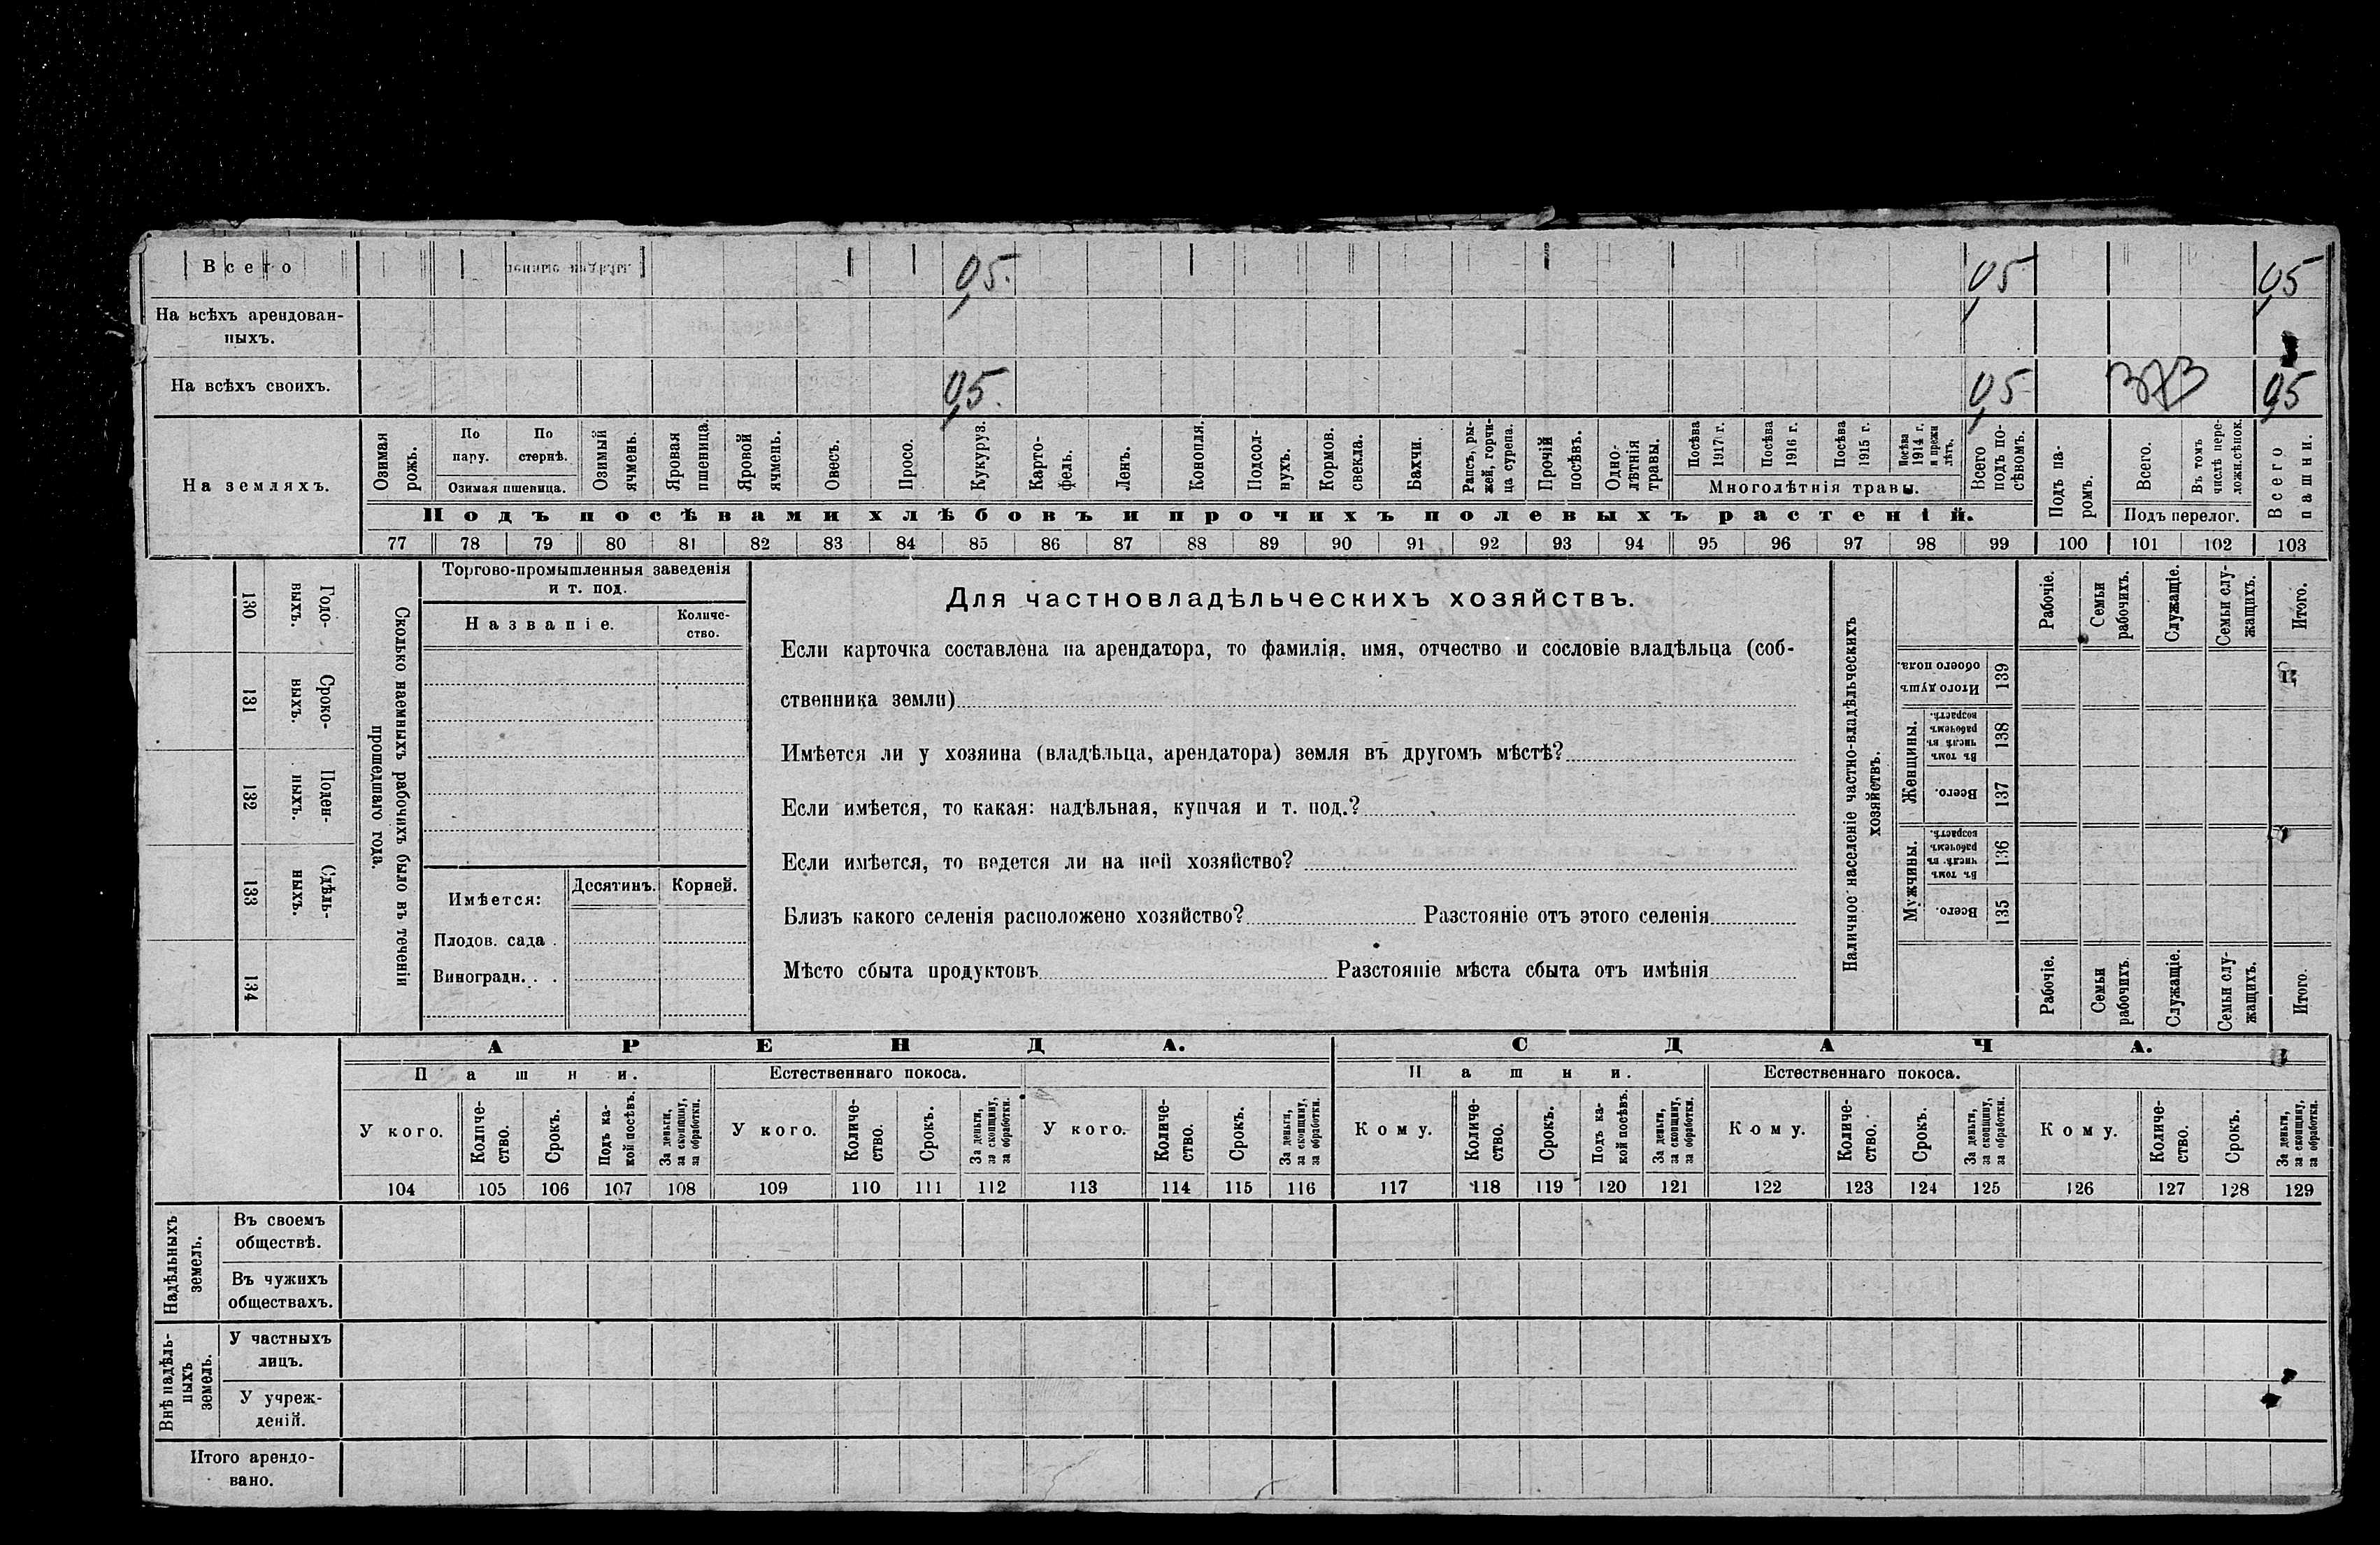 Всего 0,5. 0,5 0,5
На всѣхъ арендован-
ныхъ.
На всѣхъ своихъ. 0,5. 0,5 0,5
На земляхъ.
Озимая рожь.
По пару.
По стернѣ.
Озимая пшеница.
Озимый ячмень.
Яровая пшеница.
Яровой ячмень.
Овесъ.
Просо.
Кукуруз.
Карто-
фель.
Ленъ.
Конопля.
Подсол-
нухъ.
Кормов. свекла.
Бахчи.
Рапсъ, ры-
жей, горчи-
ца сурепа.
Прочій посѣвъ.
Одно-
лѣтнія
травы.
Посѣва 1917 г.
Посѣва 1916 г.
Посѣва 1915 г.
Посѣва 1914 г. и прежн лѣтъ.
Многолѣтнія травы.
Всего подъ по-
сѣвомъ.
Подъ па-
ромъ.
Всего.
Въ томъ числѣ пере-
ложн.сѣнок.
Подъ перелог.
Всего пашни.
Подъ посѣвами хлѣбовъ и прочихъ полевыхъ растеній.
77 78 79 80 81 82 83 84 85 86 87 88 89 90 91 92 93 94 95 96 97 98 99 100 101 102 103
130 Годо-
выхъ.
131 Сроко-
выхъ.
132 Поден-
ныхъ.
133 Сдѣль-
ныхъ.
134
Сколько наемныхъ рабочихъ было въ теченіи
прошедшаго года.
Торгово-промышленныя заведенія
и т. под.
Названіе.
Количе-
ство.
Имѣется: Десятинъ. Корней.
Плодов. сада .
Виноградн. . .
Для частновладѣльческихъ хозяйствъ.
Если карточка составлена на арендатора, то фамилія, имя, отчество и сословіе владѣльца (соб-
ственника земли)
Имѣется ли у хозяина (владѣльца, арендатора) земля въ другомъ мѣстѣ?
Если имѣется, то какая: надѣльная, купчая и т. под.?
Если имѣется, то ведется ли на ней хозяйство?
Близъ какого селенія расположено хозяйство? Разстояніе отъ этого селенія
Мѣсто сбыта продуктовъ Разстояніе мѣста сбыта отъ имѣнія
Наличное населеніе частно-владѣльческихъ
хозяйствъ.
Рабочіе.
Семьи рабочихъ.
Служащіе.
Семьи слу-
жащихъ.
Итого.
Итого душъ обоего пола. 139
Женщины.
Въ томъ числѣ въ рабочемъ возрастѣ. 138
Всего. 137
Мужчины.
Въ томъ числѣ въ рабочемъ возрастѣ. 136
Всего. 135
Рабочіе.
Семьи рабочихъ.
Служащіе.
Семьи слу-
жащихъ.
Итого.
АРЕНДА. СДАЧА.
Пашни. Естественнаго покоса. Пашни. Естественнаго покоса.
У кого.
Количе-
ство.
Срокъ.
Подъ ка-
кой посѣвъ.
За деньги, за скопщину, за обработки.
У кого.
Количе-
ство.
Срокъ.
За деньги, за скопщину, за обработки.
У кого.
Количе-
ство.
Срокъ.
За деньги, за скопщину, за обработки.
Кому.
Количе-
ство.
Срокъ.
Подъ ка-
кой посѣвъ.
За деньги, за скопщину, за обработки.
Кому.
Количе-
ство.
Срокъ.
За деньги, за скопщину, за обработки.
Кому.
Количе-
ство.
Срокъ.
За деньги, за скопщину, за обработки.
104 105 106 107 108 109 110 111 112 113 114 115 116 117 118 119 120 121 122 123 124 125 126 127 128 129
Надѣльныхъ
земель.
Въ своемъ
обществѣ.
Въ чужихъ
обществахъ.
Внѣ надѣль-
ныхъ
земель.
У частныхъ
лицъ.
У учреж-
деній.
Итого арендо-
вано.